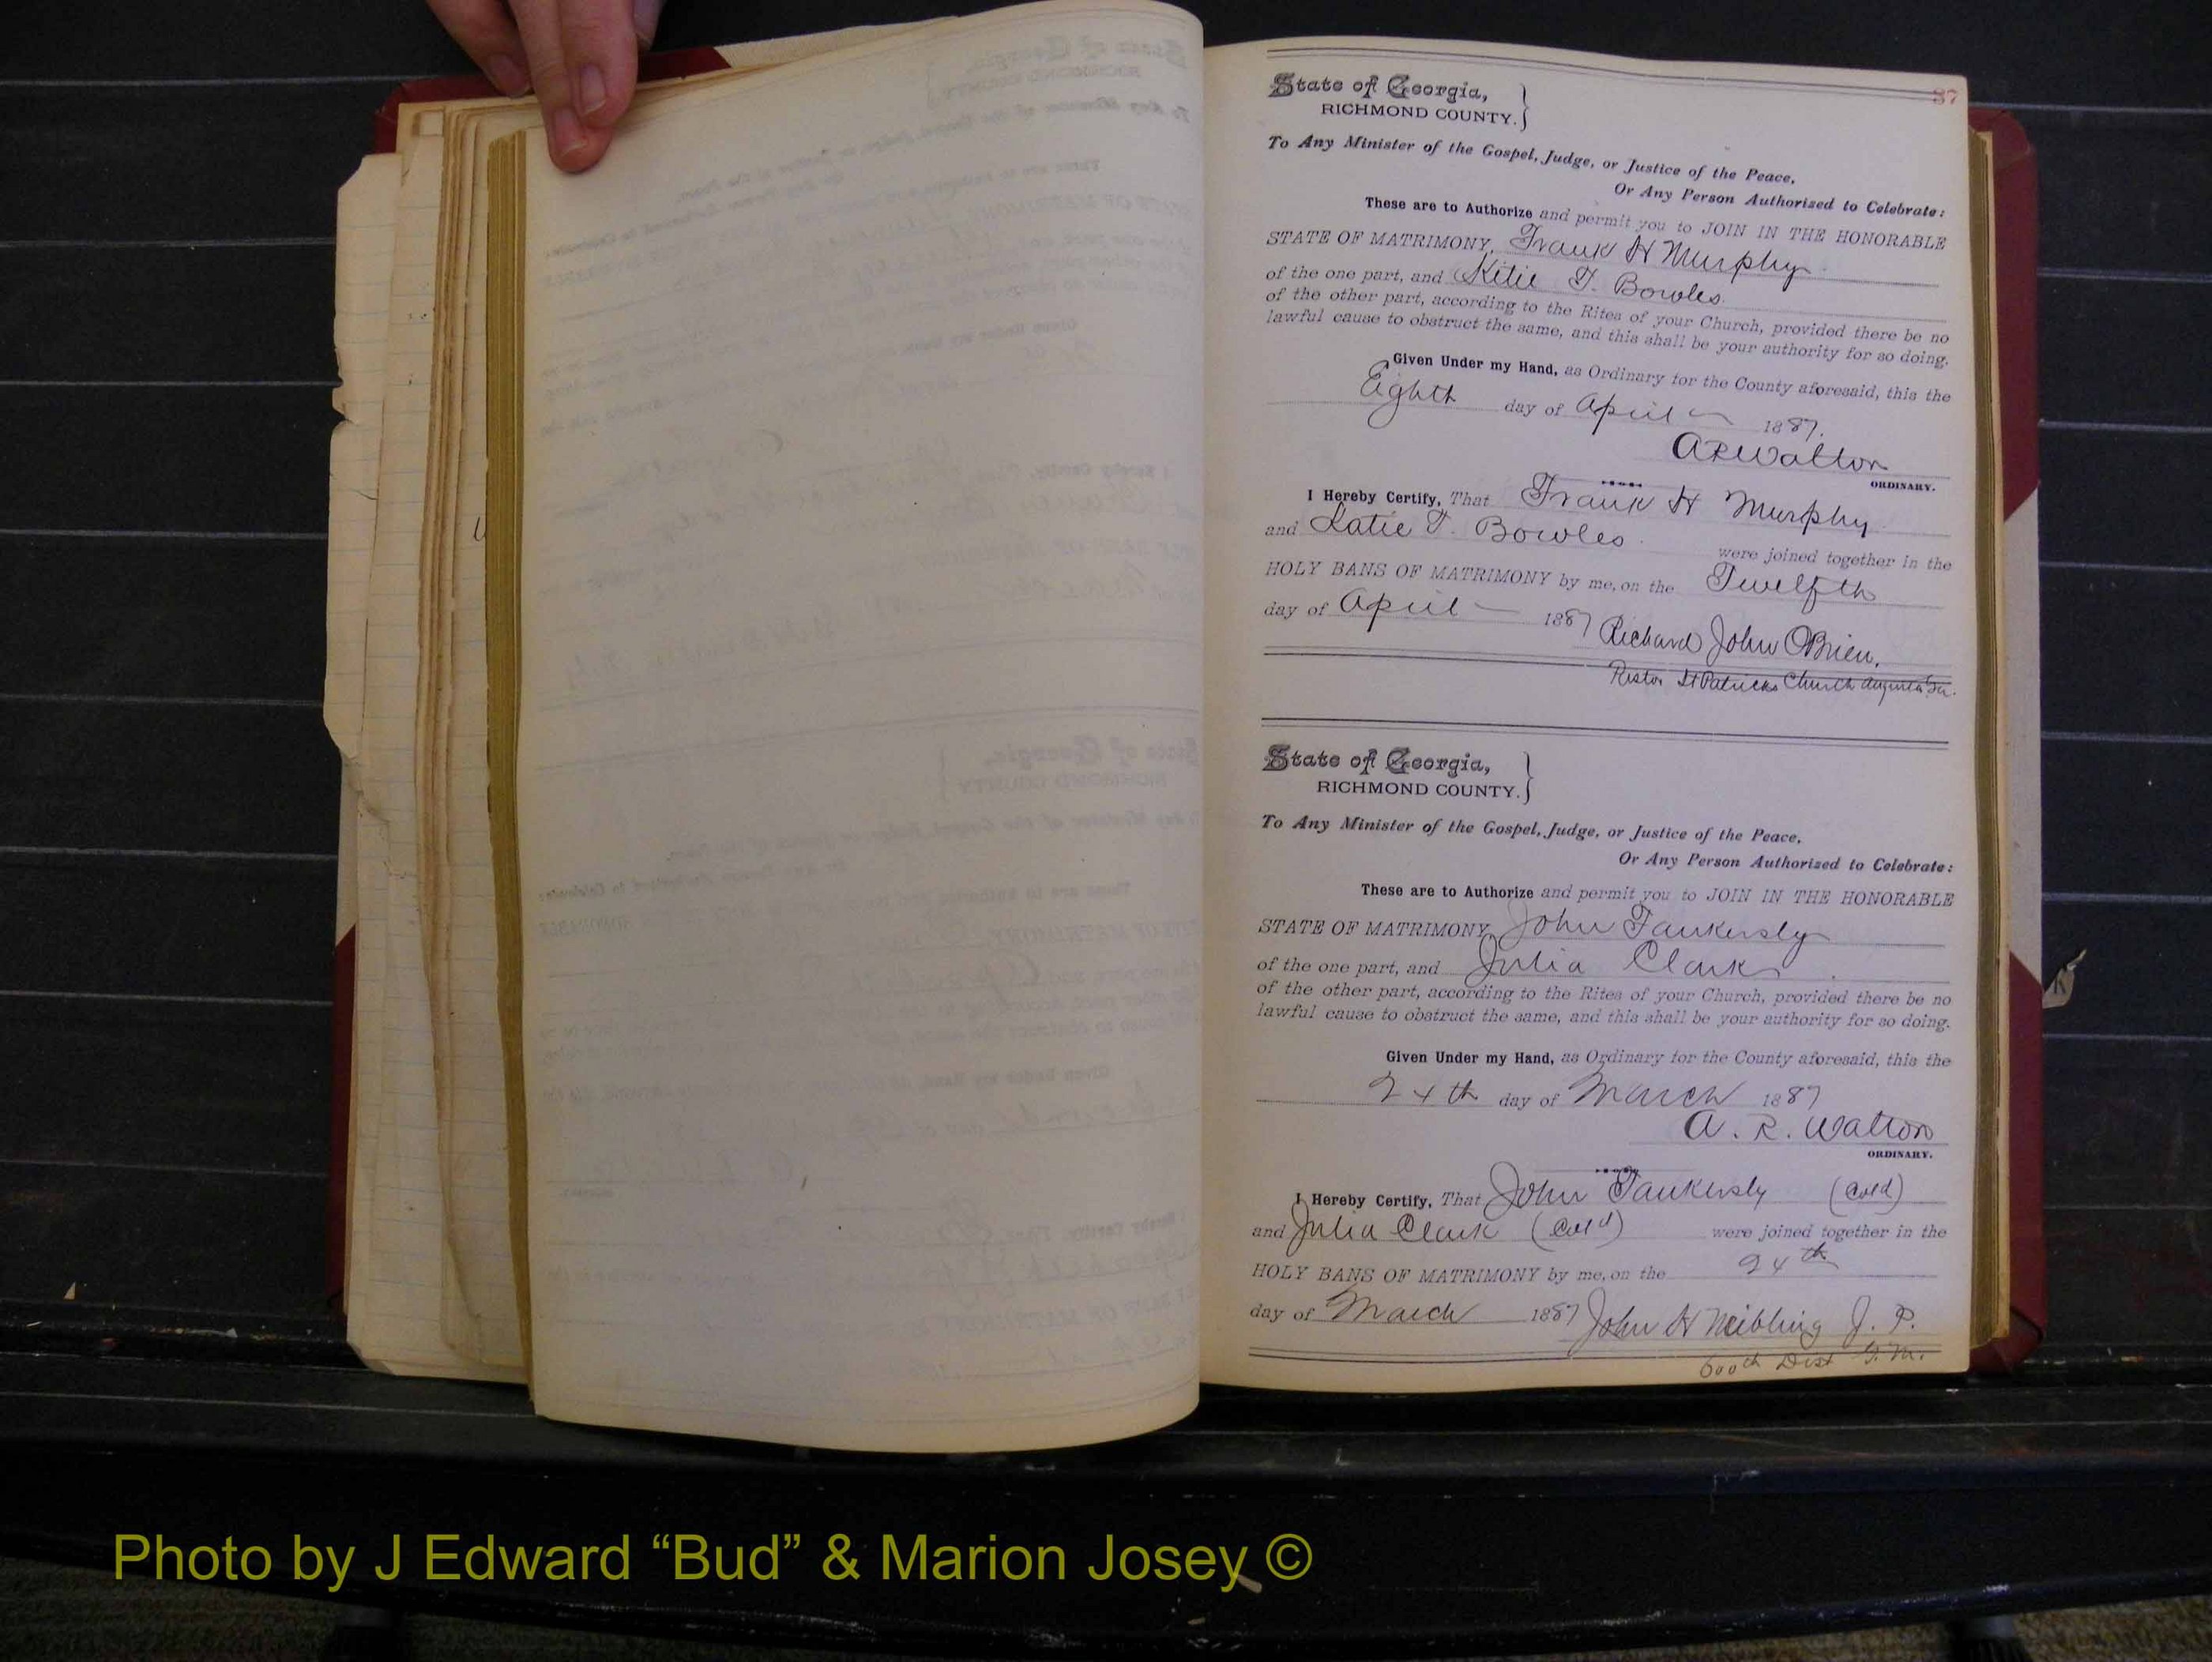 37
State of Georgia,
RICHMOND COUNTY.
To Any Minister of the Gospel, Judge, or Justice of the Peace,
Or Any Person Authorized to Celebrate:
These are to Authorize and permit you to JOIN IN THE HONORABLE
STATE OF MATRIMONY, Frank H Murphy
of the one part, and Kitie T. Bowles
of the other part, according to the Rites of your Church, provided there be no
lawful cause to obstruct the same, and this shall be your authority for so doing.
Given Under my Hand, as Ordinary for the County aforesaid, this the
Eighth day of April 1887.
A R Walton
ORDINARY.
I Hereby Certify, That Frank H Murphy
and Katie T. Bowles were joined together in the
HOLY BANS OF MATRIMONY by me, on the Twelfth
day of April 1887 Richard John OBrien,
Restor St Patricks Church Augusta Ga.
State of Georgia,
RICHMOND COUNTY.
To Any Minister of the Gospel, Judge, or Justice of the Peace,
Or Any Person Authorized to Celebrate:
These are to Authorize and permit you to JOIN IN THE HONORABLE
STATE OF MATRIMONY, John Tankersly
of the one part, and Julia Clark
of the other part, according to the Rites of your Church, provided there be no
lawful cause to obstruct the same, and this shall be your authority for so doing.
Given Under my Hand, as Ordinary for the County aforesaid, this the
24th day of March 1887
A. R. Walton
ORDINARY.
I Hereby Certify, That John Tankersly (Cold)
and Julia Clark (Cold) were joined together in the
HOLY BANS OF MATRIMONY by me, on the 24th
day of March 1887 John H Neibling J. P.
600th Dist G. M.
K
Photo by J Edward “Bud” & Marion Josey ©